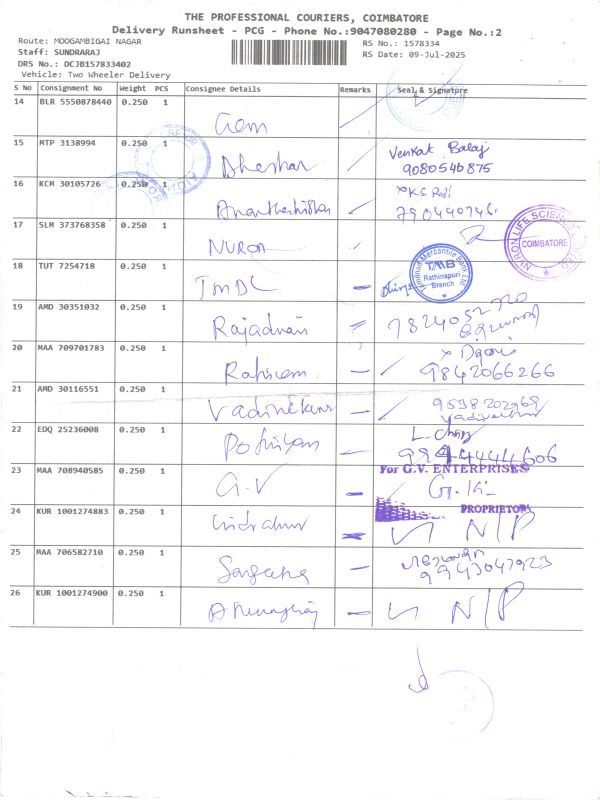 THE PROFESSIONAL COURIERS, COIMBATORE
Delivery Runsheet - PCG - Phone No.:9047080280 - Page No.:2
Route: MOOGAMBIGAI NAGAR
RS No.: 1578334
Staff: SUNDRARAJ
RS Date: 09-Jul-2025
DRS No.: DCJB157833402
Vehicle: Two Wheeler Delivery
S No Consignment No Weight PCS Consignee Details Remarks Seal & Signature
14 BLR 5550878440 0.250 1 Gem
15 MTP 3138994 0.250 1 Venkat Balaj
9080540875
16 KCM 30105726 0.250 1 K.S. Raji
790440746
17 SLM 373768358 0.250 1 NURON
NURON LIFE SCIENCE
COIMBATORE
18 TUT 7254718 0.250 1 TMBL
Tamilnad Mercantile Bank Ltd
TMB
Rathinapuri
Branch
19 AMD 30351032 0.250 1
20 MAA 709701783 0.250 1
9842066266
21 AMD 30116551 0.250 1 9538202969
22 EDQ 25236008 0.250 1
23 MAA 708940585 0.250 1 G.V
For G.V. ENTERPRISES
PROPRIETOR
24 KUR 1001274883 0.250 1 N/P
25 MAA 706582710 0.250 1 Sangeetha
9943047923
26 KUR 1001274900 0.250 1 N/P